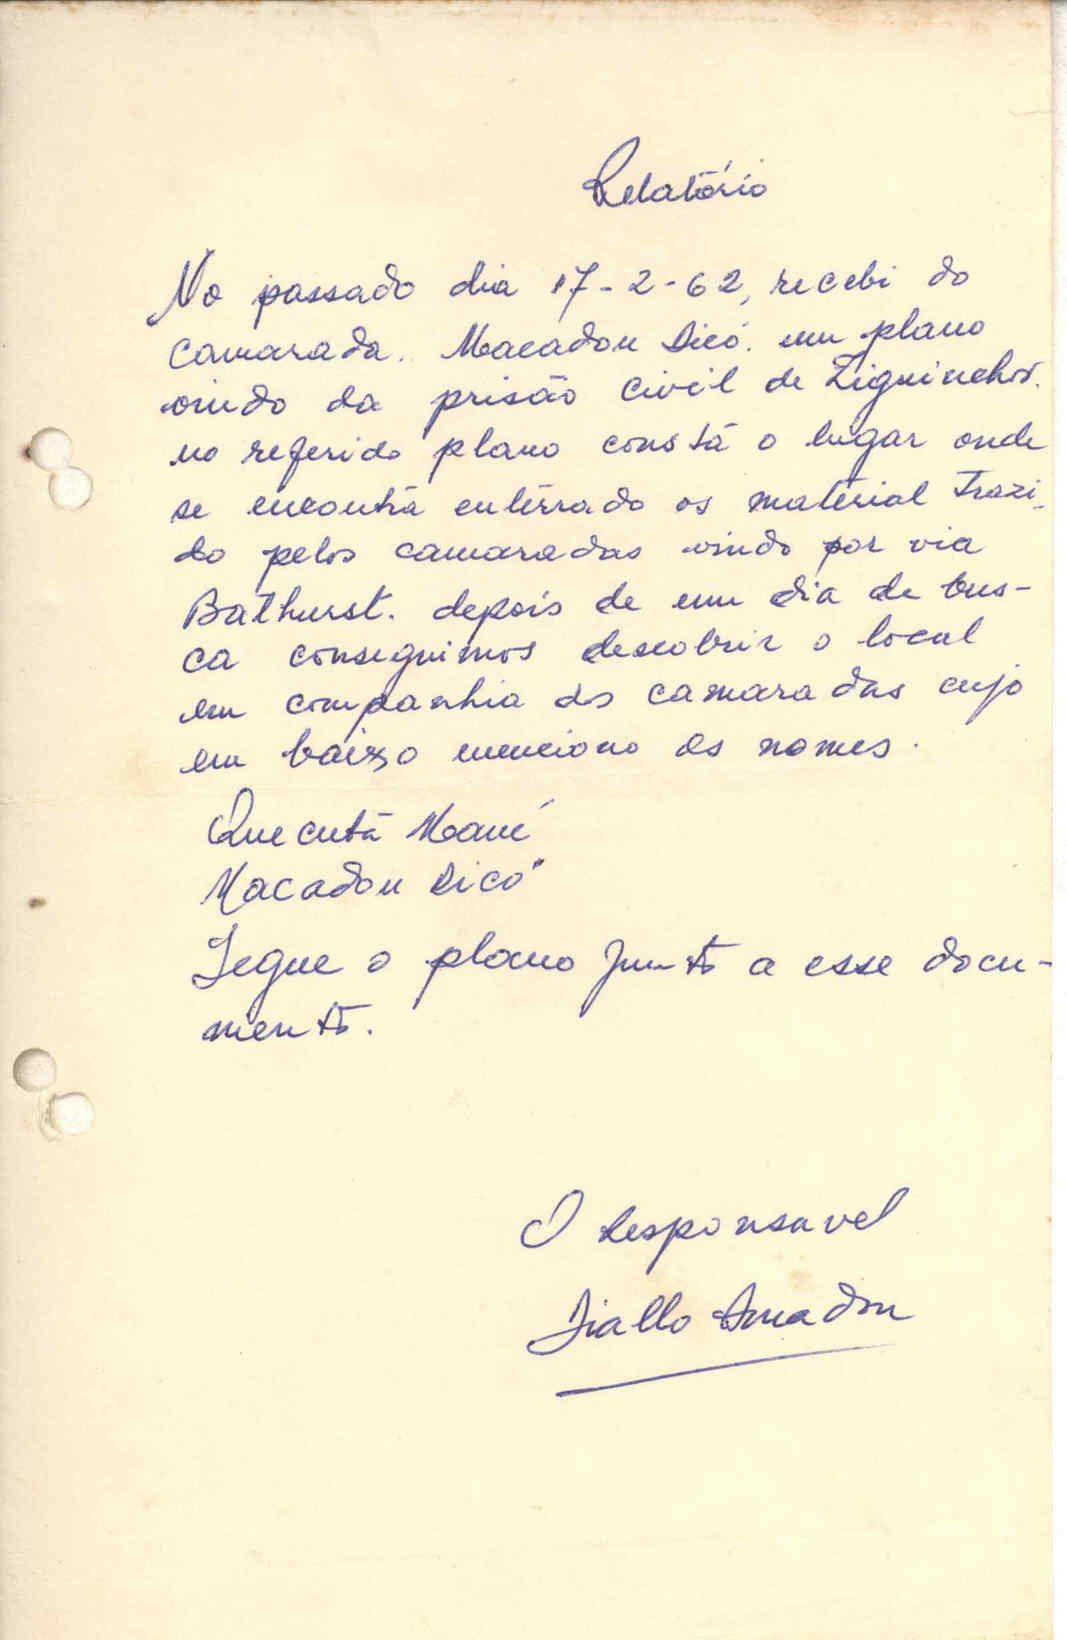 Relatório
No passado dia 17-2-62, recebi do
camarada. Macadou Dicó. um plano
vindo da prisão civil de Ziguinchor.
no referido plano constá o lugar onde
se encontrá entérrado os matérial Trazi-
do pelos camaradas vindo por via
Bathurst. depois de um dia de bus-
ca conseguimos descobrir o local
em companhia dos camaradas cujo
em baixo menciono os nomes.
Quecutá Mané
Macadou Dicó
Segue o plano junto a esse docu-
mento.
O Responsavel
Diallo Amadou